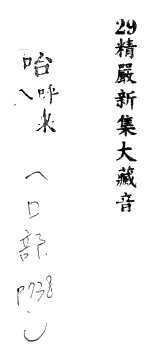 29精嚴新集大藏音
咍
呼來
口部
P738